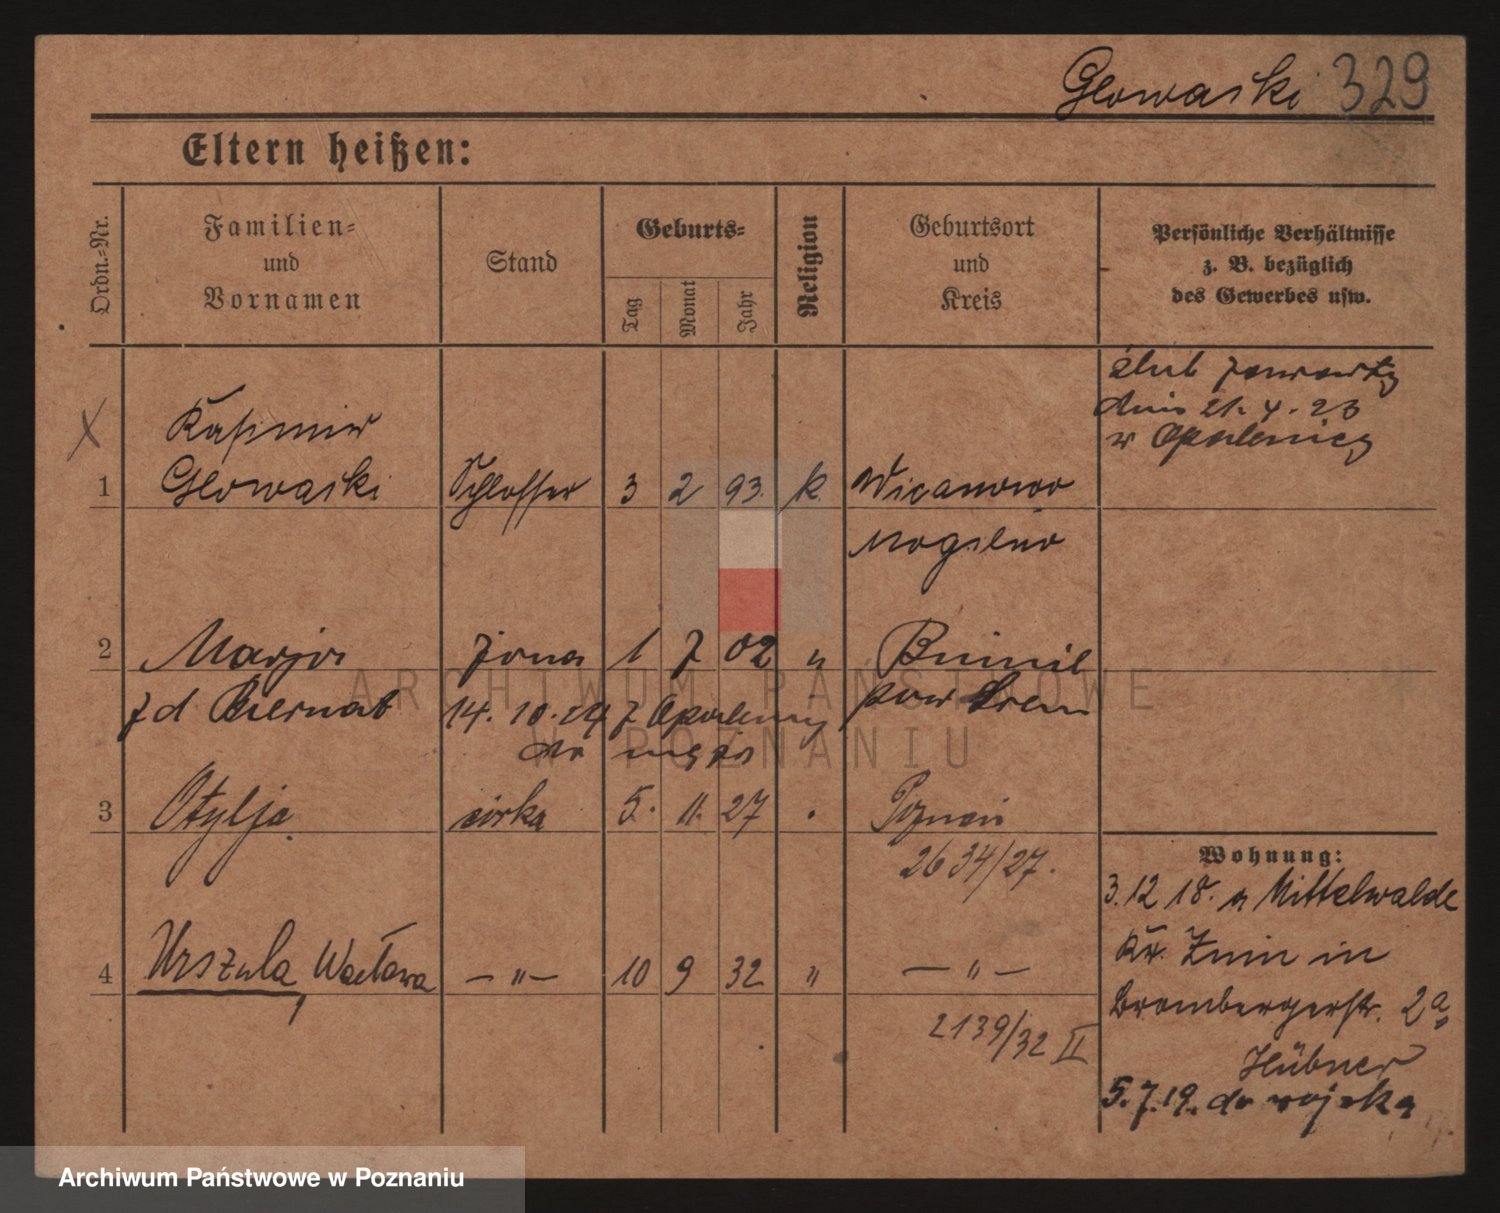 Glowaski 329
Eltern heißen:
Ordn.-Nr.
Familien-
und
Vornamen
Stand
Geburts-
Tag
Monat
Jahr
Religion
Geburtsort
und
Kreis
Persönliche Verhältnisse
z. B. bezüglich
des Gewerbes usw.
ślub zawarty
dnia 21. 4. 23
w Opalenicy
Kasimir
1 Glowaski Schlosser 3 2 93. k. Wicanowo
Mogilno
2 Marja żona 1 7 02 " Bninie
zd Biernat 14. 10. 24 z Opalenicy pow Śrem
do męża
3 Otylja córka 5. 11. 27 " Poznań
2634/27.
4 Urszula, Wacława — " — 10 9 32 " — " —
2139/32 II
Wohnung:
3. 12 18. a Mittelwalde
Kr. Znin in
Brombergerstr. 2a
Hübner
5. 7. 19. do wojska
ARCHIWUM PAŃSTWOWE
W POZNANIU
Archiwum Państwowe w Poznaniu